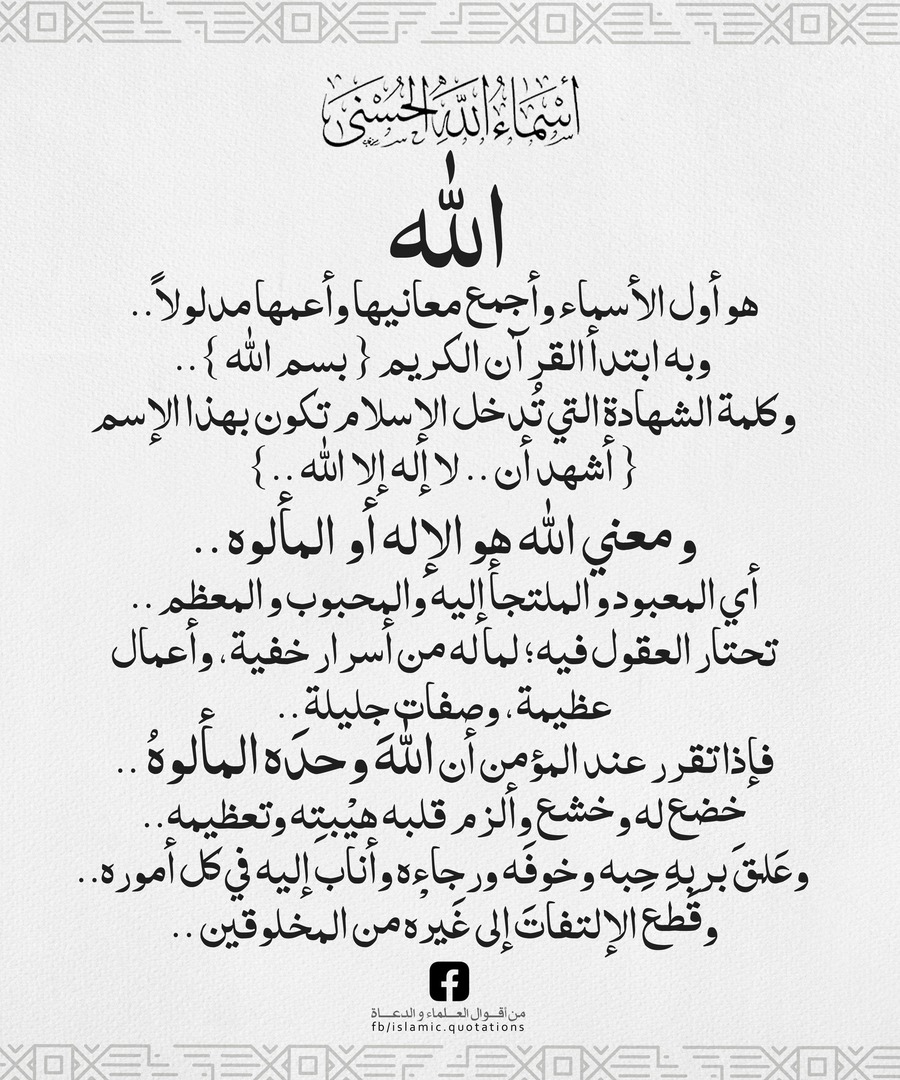 أسْمَاءُ اللَّهِ الحُسْنَى
الله
هو أول الأسماء وأجمع معانيها وأعمها مدلولاً..
وبه ابتدأ القرآن الكريم { بسم الله }..
وكلمة الشهادة التي تُدخل الإسلام تكون بهذا الإسم
{ أشهد أن .. لا إله إلا الله ..}
و معني الله هو الإله أو المألوه ..
أي المعبود و الملتجأ إليه والمحبوب و المعظم ..
تحتار العقول فيه؛ لما له من أسرار خفية، وأعمال
عظيمة، وصفات جليلة ..
فإذا تقرر عند المؤمن أن اللهَ وحدَه المألوهُ ..
خضع له وخشع وألزم قلبه هيْبتِه وتعظيمه..
وعَلقَ بربهِ حِبه وخوفَه ورجاءِه وأناب إليه في كل أموره..
وقَطع الإلتفاتَ إلى غَيرْه من المخلوقين ..
من أقوال العلماء و الدعاة
fb/islamic.quotations